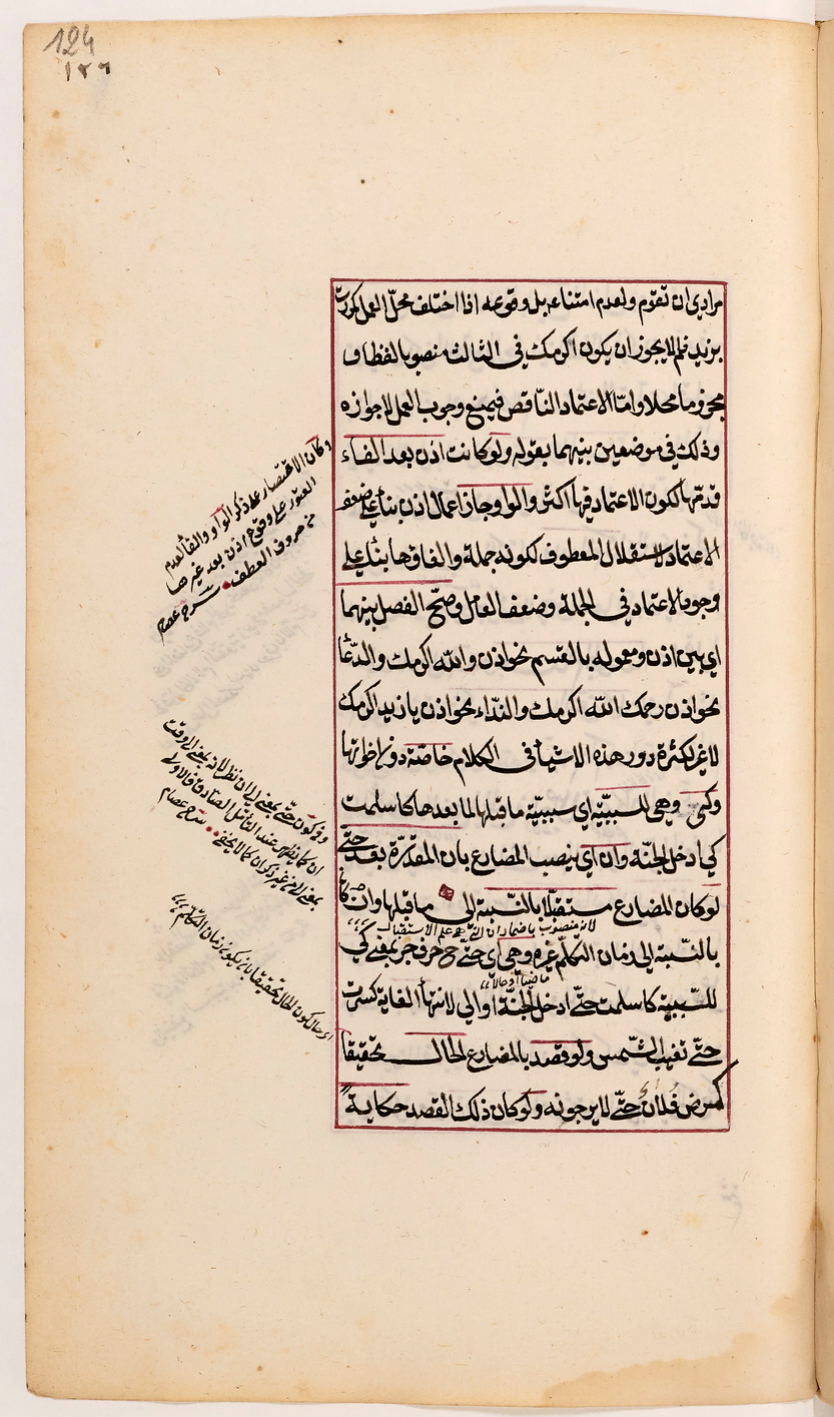 124
١٢٦
مرادي ان تقوم ولعدم امتناعه بل وقوعه اذا اختلف محل العمل كمررت
بزيد فلم لا يجوز ان يكون اكرمك في الثالث منصوبا لفظا و
مجزوما محلا واما الاعتماد الناقص فيمنع وجوب العمل لا جوازه
وذلك في موضعين بينهما بقوله ولو كانت اذن بعد الفاء
قدمها لكون الاعتماد فيها اكثر والواو جاز اعمال اذن بناء على ضعف
الاعتماد لاستقلال المعطوف لكونه جملة والغاؤها بناء على
وجود الاعتماد في الجملة وضعف العامل وصح الفصل بينهما
اي بين اذن ومعموله بالقسم نحو اذن والله اكرمك والدعا
نحو اذن رحمك الله اكرمك والنداء نحو اذن يا زيد اكرمك
لا غير لكثرة دور هذه الاشيا في الكلام خاصة دون اخواتها
وكي وهي للسببية اي سببية ما قبلها لما بعدها كاسلمت
كي ادخل الجنة وان اي ينصب المضارع بان المقدرة بعد حتى
لو كان المضارع مستقبلا بالنسبة الى ما قبلها وان كان
لانه منصوب باضمار ان التي هي علم الاستقبال
بالنسبة الى زمان التكلم غيره وهي اي حتى ح حرف جر بمعنى كي
ماضيا او حالا
للسببية كاسلمت حتى ادخل الجنة او الى لانتهاء الغاية كسرت
حتى تغيب الشمس ولو قصد بالمضارع الحال تحقيقا
كمرض فلان حتى لا يرجونه ولو كان ذلك القصد حكاية
وكان الاقتصار على ذكر الواو والفا لعدم
العثور على وقوع اذن بعد غيرهما
من حروف العطف شرح عصام
وفي كون حتى بمعنى الى ان نظر لانه بمعنى الى وقت
ان كما يظهر عند التأمل الصادق فالاولى
بمعنى الى من غير ذكر ان كما لا يخفى شرح عصام
اي حال كون الحال تحقيقا بان يكون زمان التكلم